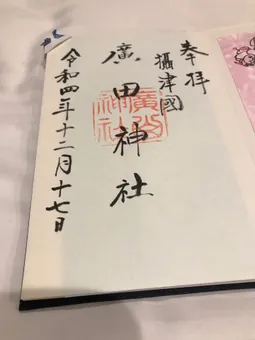 奉拝
攝津國
廣田神社
令和四年十二月十七日
廣田神社